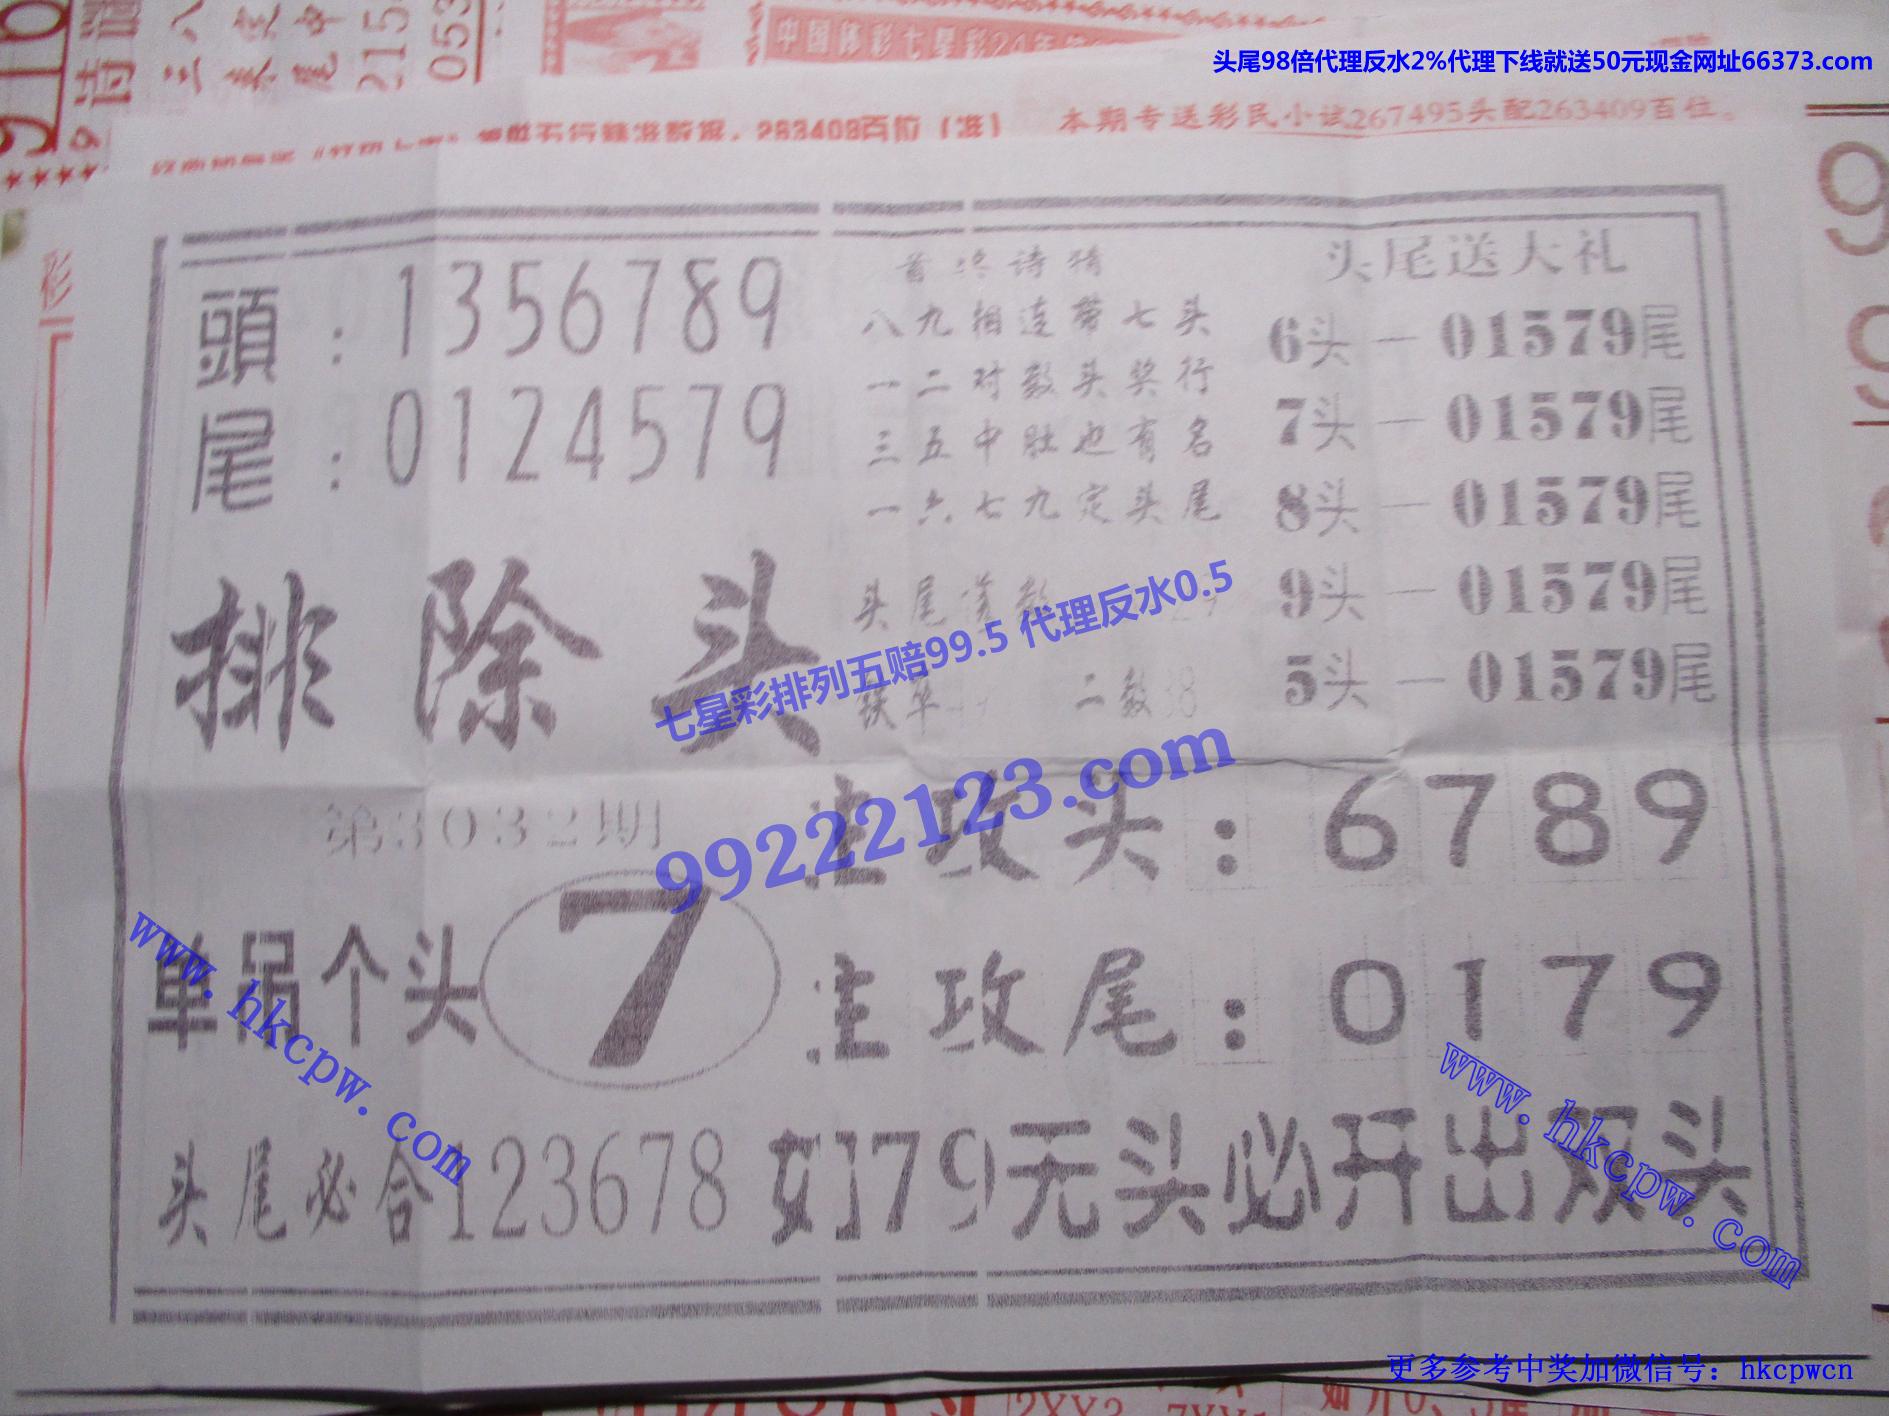 头尾98倍代理反水2%代理下线就送50元现金网址66373.com
中国体彩七星彩24年
本期专送彩民小试267495头配263409百位。
263409百位（准）
彩
頭：1356789
尾：0124579
排除头
首 诗猜
八九相连带七头
一二对数头奖行
三五中肚也有名
一六七九定头尾
头尾 数
二数38
头尾送大礼
6头—01579尾
7头—01579尾
8头—01579尾
9头—01579尾
5头—01579尾
七星彩排列五赔99.5 代理反水0.5
99222123.com
第3032期
单吊个头 7
主攻头：6789
主攻尾：0179
头尾必合123678
如179无头必开出双头
www.hkcpw.com
www.hkcpw.com
更多参考中奖加微信号：hkcpwcn